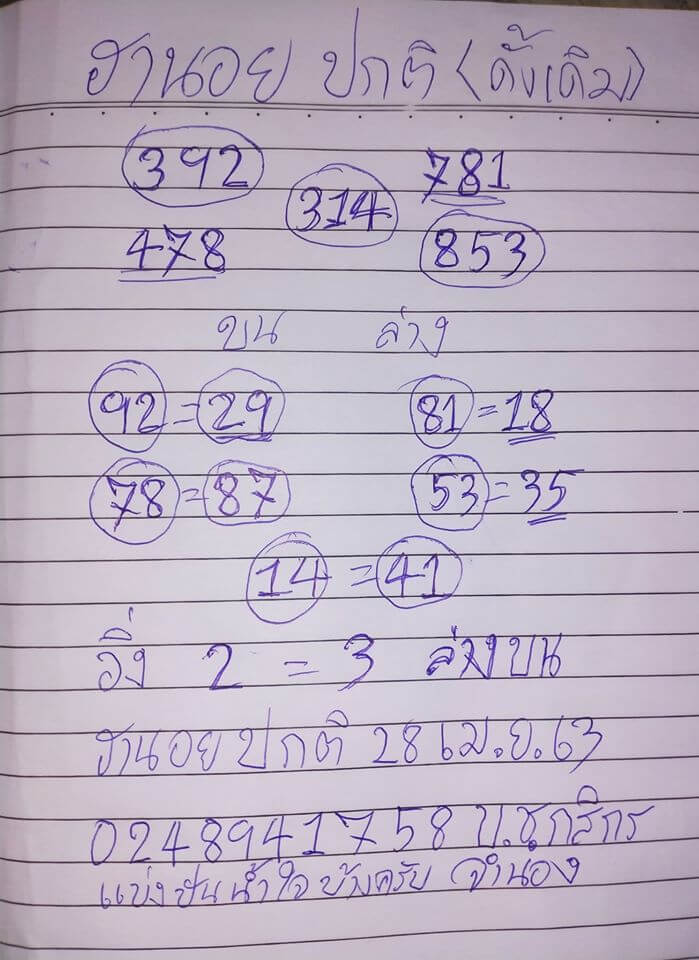 ฮานอย ปกติ (ดั้งเดิม)
392 781
314
478 853
บน ล่าง
92 = 29 81 = 18
78 = 87 53 = 35
14 = 41
วิ่ง 2 = 3 ล่างบน
ฮานอย ปกติ 28 เม.ย.63
0248941758 บ.ชุกสิกร
แบ่งปันน้ำใจ บ้างครับ จำนอง